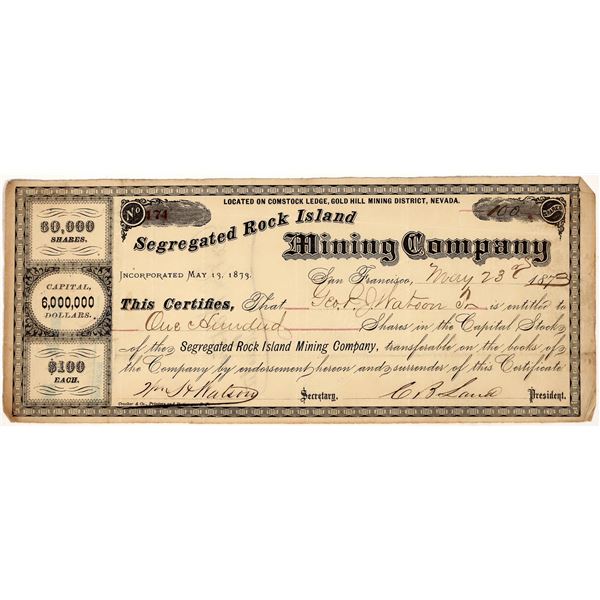 LOCATED ON COMSTOCK LEDGE, GOLD HILL MINING DISTRICT, NEVADA.
No 174
100 SHARES
60,000 SHARES.
Segregated Rock Island Mining Company
INCORPORATED MAY 13, 1873.
San Francisco, May 23d 1873
CAPITAL, 6,000,000 DOLLARS.
This Certifies, That Geo. Watson Tr is entitled to
One Hundred Shares in the Capital Stock
of the Segregated Rock Island Mining Company, transferable on the books of
$100 EACH.
the Company by endorsement hereon and surrender of this Certificate
Wm H Watson Secretary. C B Land President.